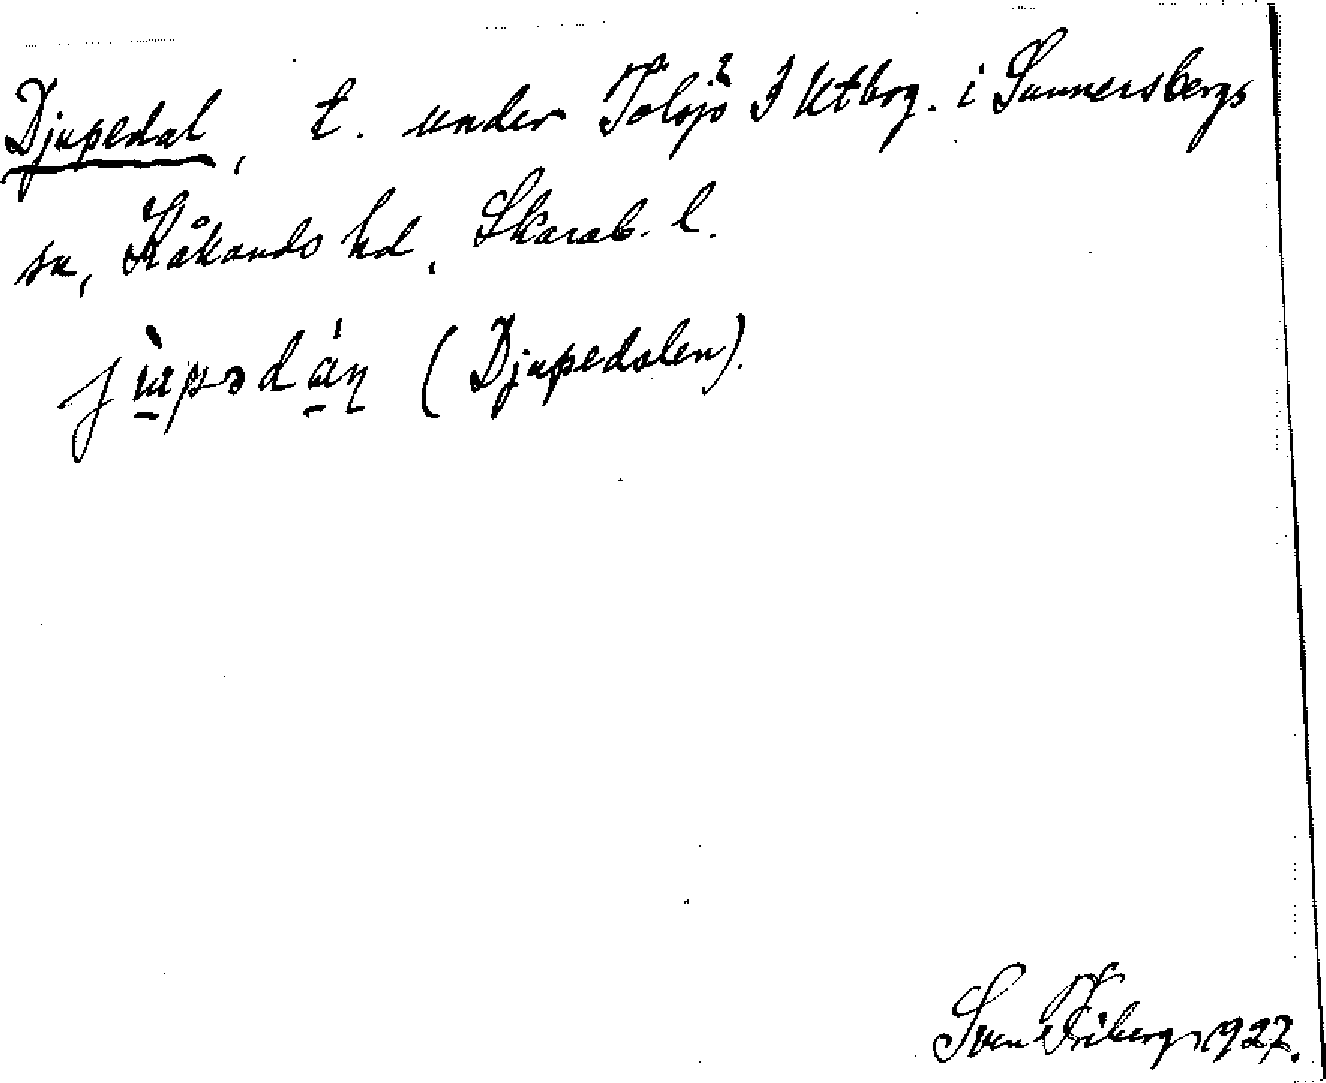 Djupedal, t. under Tolsjö 2 I Utbrg. i Sunnersbergs
sn, Kåkands hd, Skarab. l.
jùpədáṇ (Djupedalen).
Sven Friberg 1927.